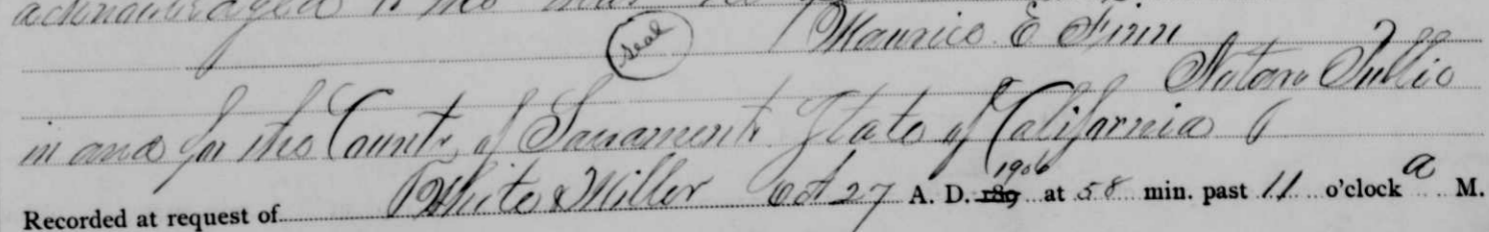 acknowledged to me that he
(Seal) Maurice E Finn
Notary Public
in and for the County of Sacramento State of California
Recorded at request of White & Miller Oct 27 A. D. 189 1906 at 58 min. past 11 o'clock a M.